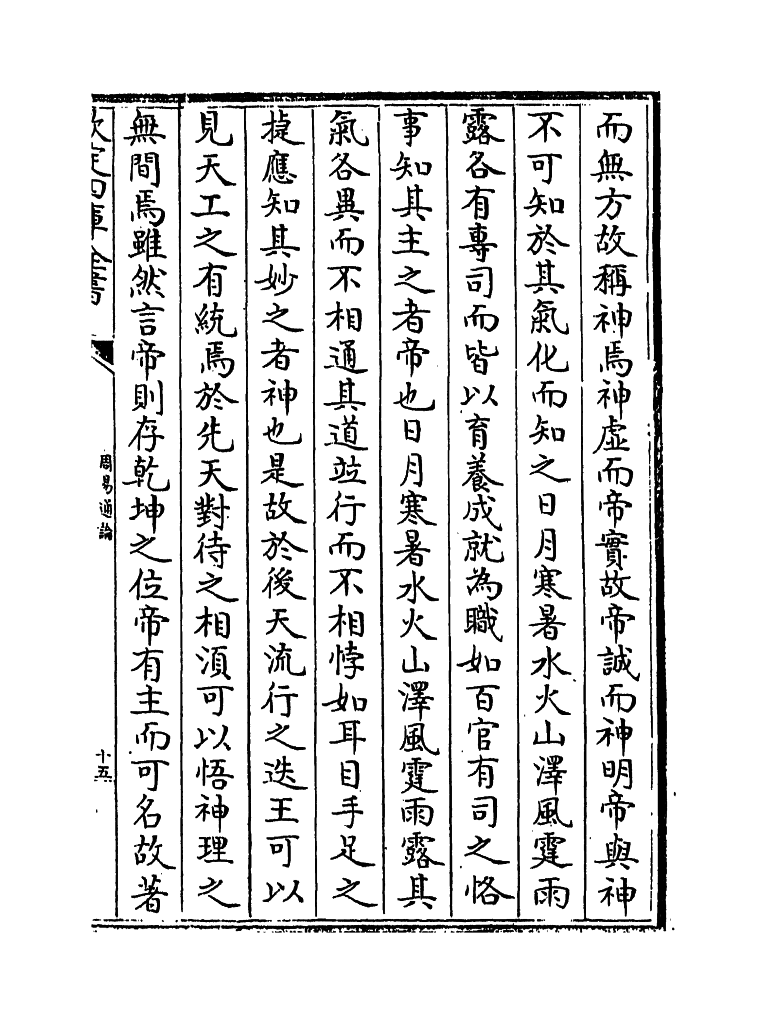 而無方故稱神焉神虛而帝實故帝誠而神明帝與神
不可知於其氣化而知之日月寒暑水火山澤風霆雨
露各有專司而皆以育養成就為職如百官有司之恪
事知其主之者帝也日月寒暑水火山澤風霆雨露其
氣各異而不相通其道竝行而不相悖如耳目手足之
捷應知其妙之者神也是故於後天流行之迭王可以
見天工之有統焉於先天對待之相湏可以悟神理之
無間焉雖然言帝則存乾坤之位帝有主而可名故著
欽定四庫全書
周易通論
十五